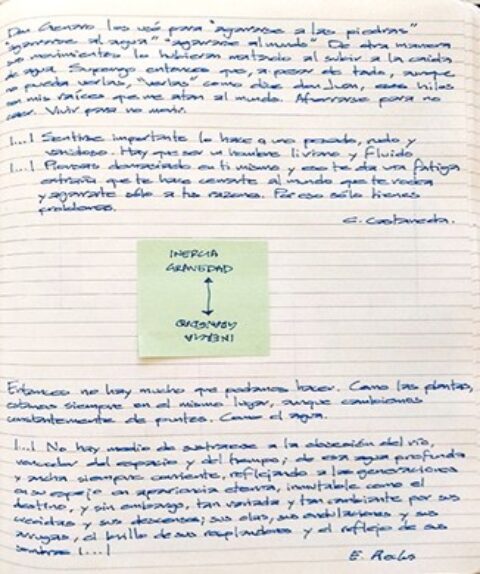 Don Genaro las usó para "agarrarse a las piedras"
"agarrarse al agua" "agarrarse al mundo" De otra manera
sus movimientos lo hubieran matado al subir a la caída
de agua. Supongo entonces que, a pesar de todo, aunque
no pueda verlas, "verlas" como dice don Juan, esos hilos
son mis raíces que me atan al mundo. Aferrarse para no
caer. Vivir para no morir.
[...] Sentirse importante lo hace a uno pesado, rudo y
vanidoso. Hay que ser un hombre liviano y fluido.
[...] Piensas demasiado en ti mismo y eso te da una fatiga
extraña que te hace cerrarte al mundo que te rodea
y agarrarte sólo a tus razones. Por eso sólo tienes
problemas.
C. Castaneda.
INERCIA
GRAVEDAD
GRAVEDAD
INERCIA
Entonces no hay mucho que podamos hacer. Como las plantas,
estamos siempre en el mismo lugar, aunque cambiemos
constantemente de puntos. Como el agua.
[...] No hay medio de sustraerse a la obsesión del río,
vencedor del espacio y del tiempo; de esa agua profunda
y ancha siempre corriente, reflejando a las generaciones
en su espejo en apariencia eterna, inmutable como el
destino, y sin embargo, tan variada y tan cambiante por sus
crecidas y sus descensos; sus olas, sus ondulaciones y sus
arrugas, el brillo de sus resplandores y el reflejo de sus
sombras [...]
E.